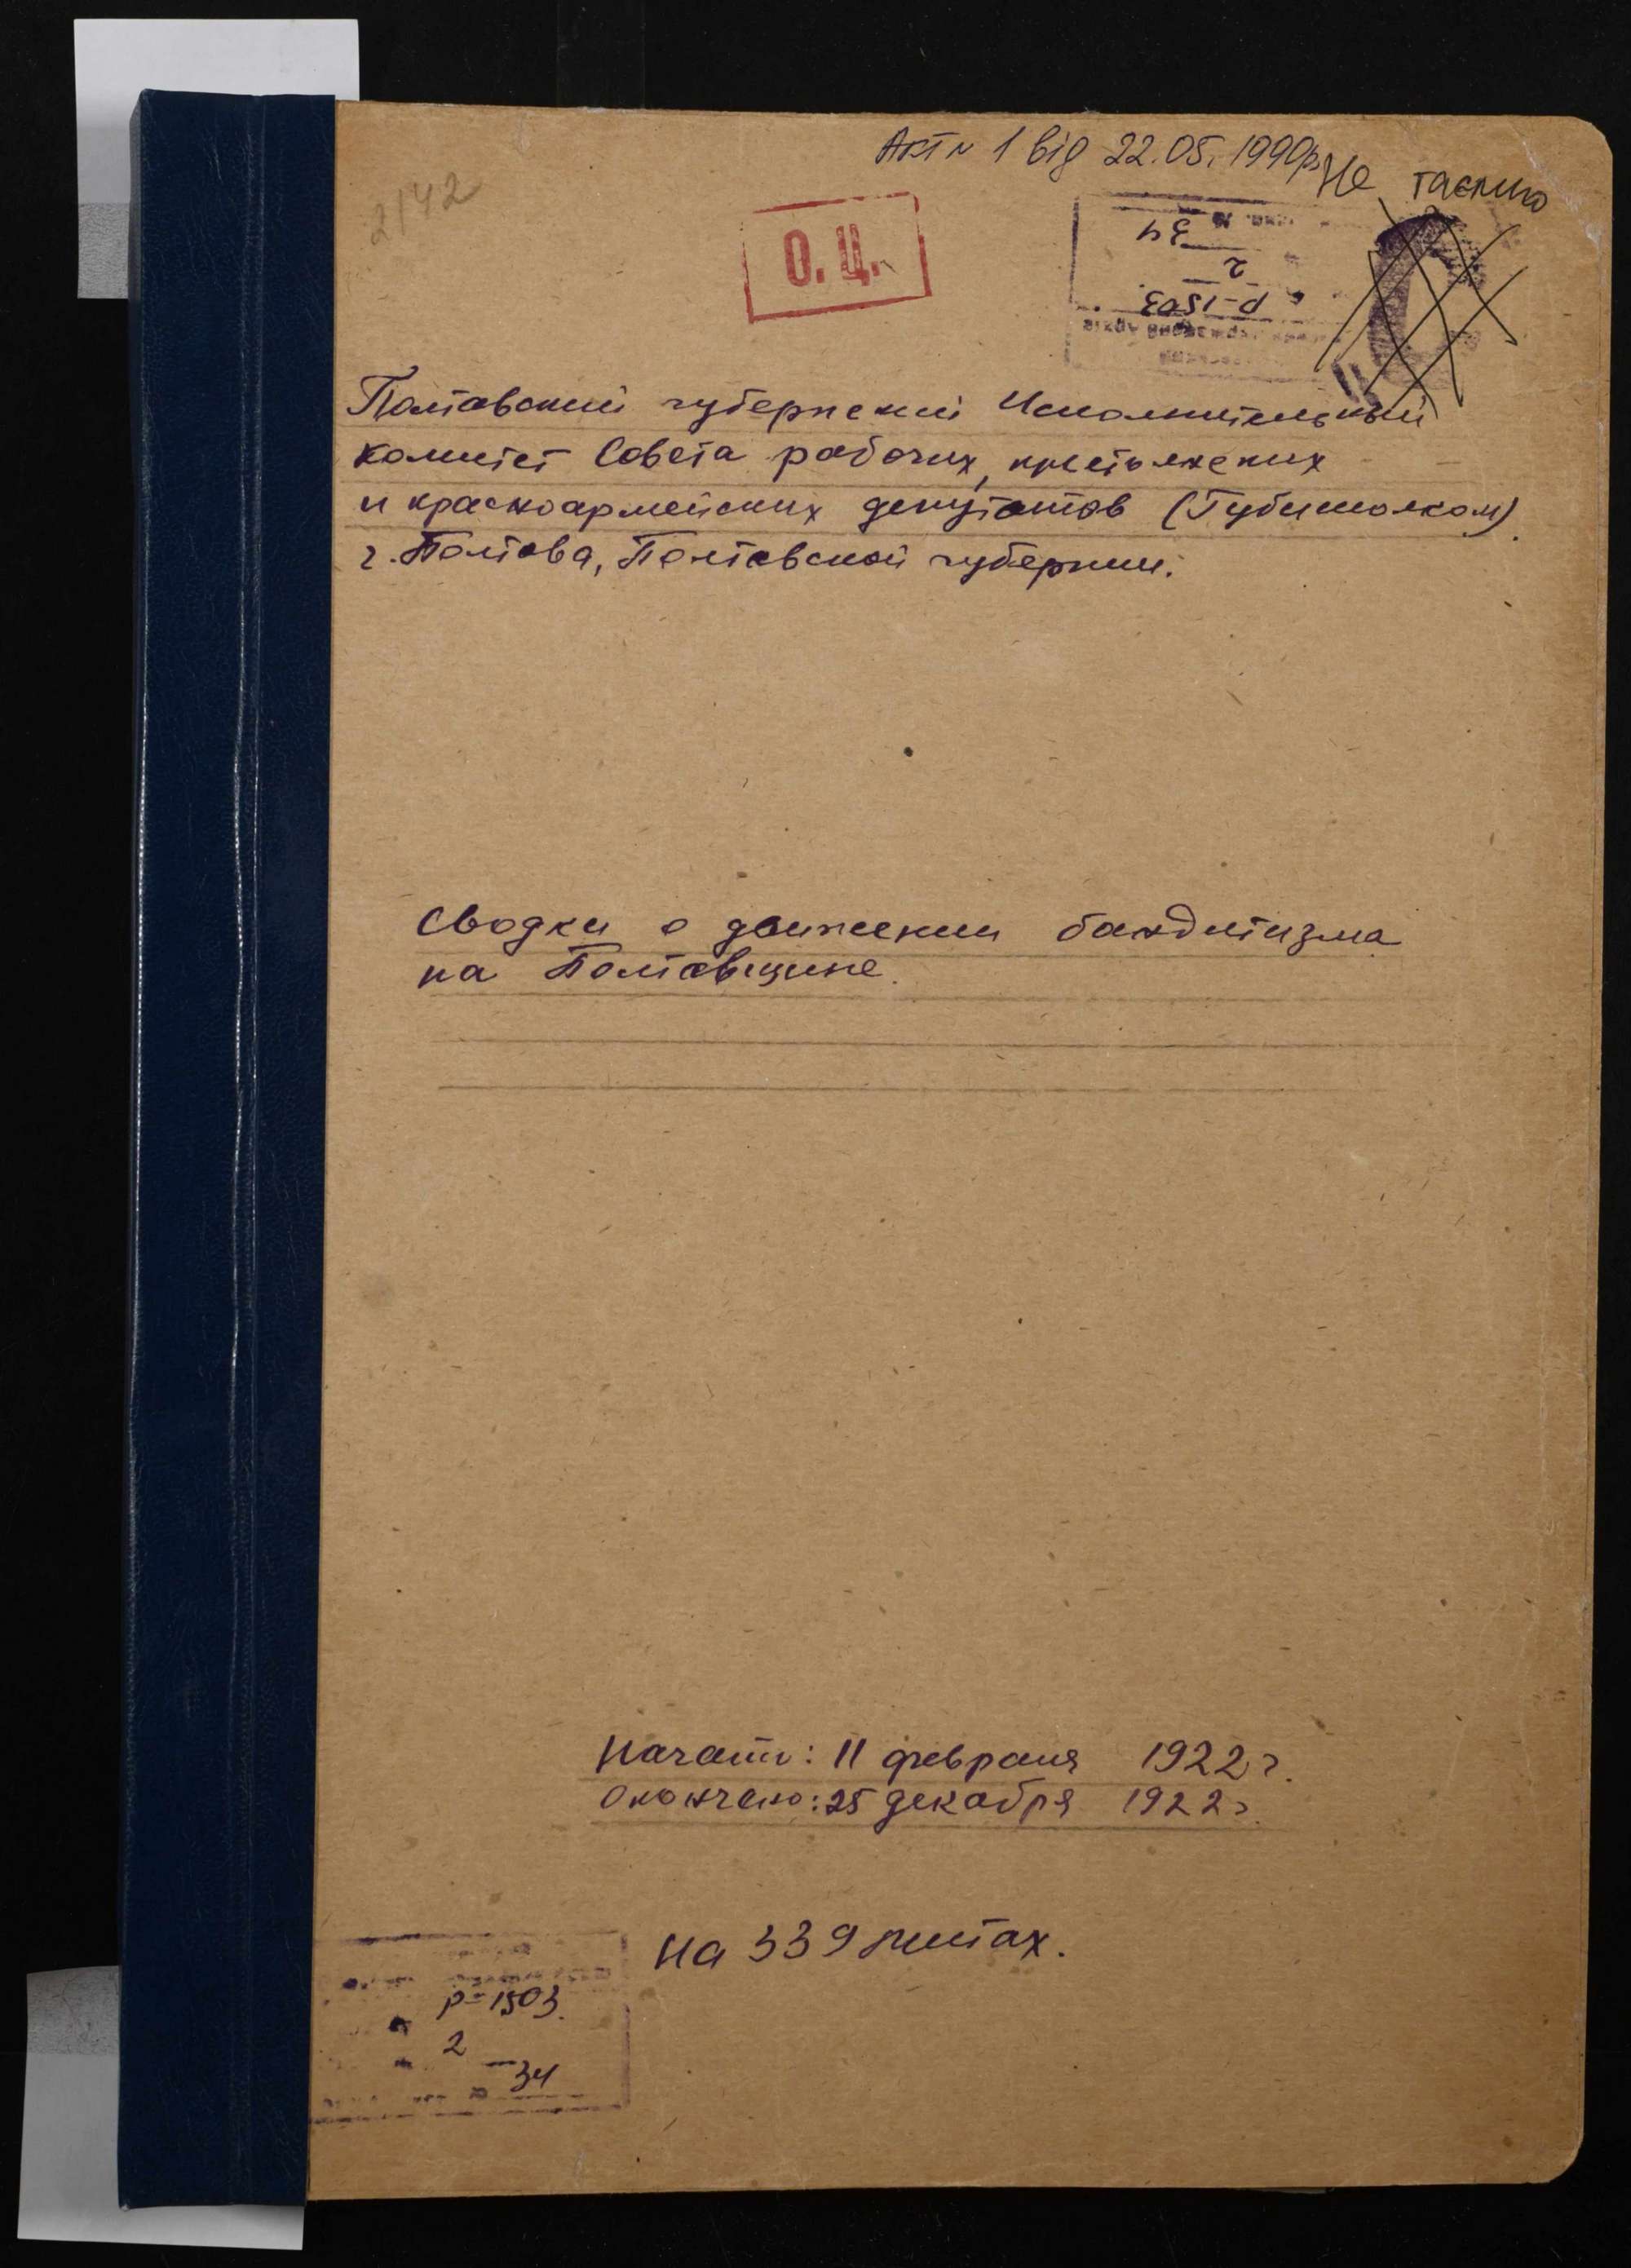 Акт № 1 від 22.05.1990р. Не таємно
2142
О.Ц.
34
2
Р-1503
Полтавский губернский Исполнительный
комитет Совета рабочих, крестьянских
и красноармейских депутатов (Губисполком).
г. Полтава, Полтавской губернии.
Сводки о движении бандитизма
на Полтавщине.
Начато: 11 февраля 1922 г.
Окончено: 25 декабря 1922 г.
На 339 листах.
Р-1503.
2
34